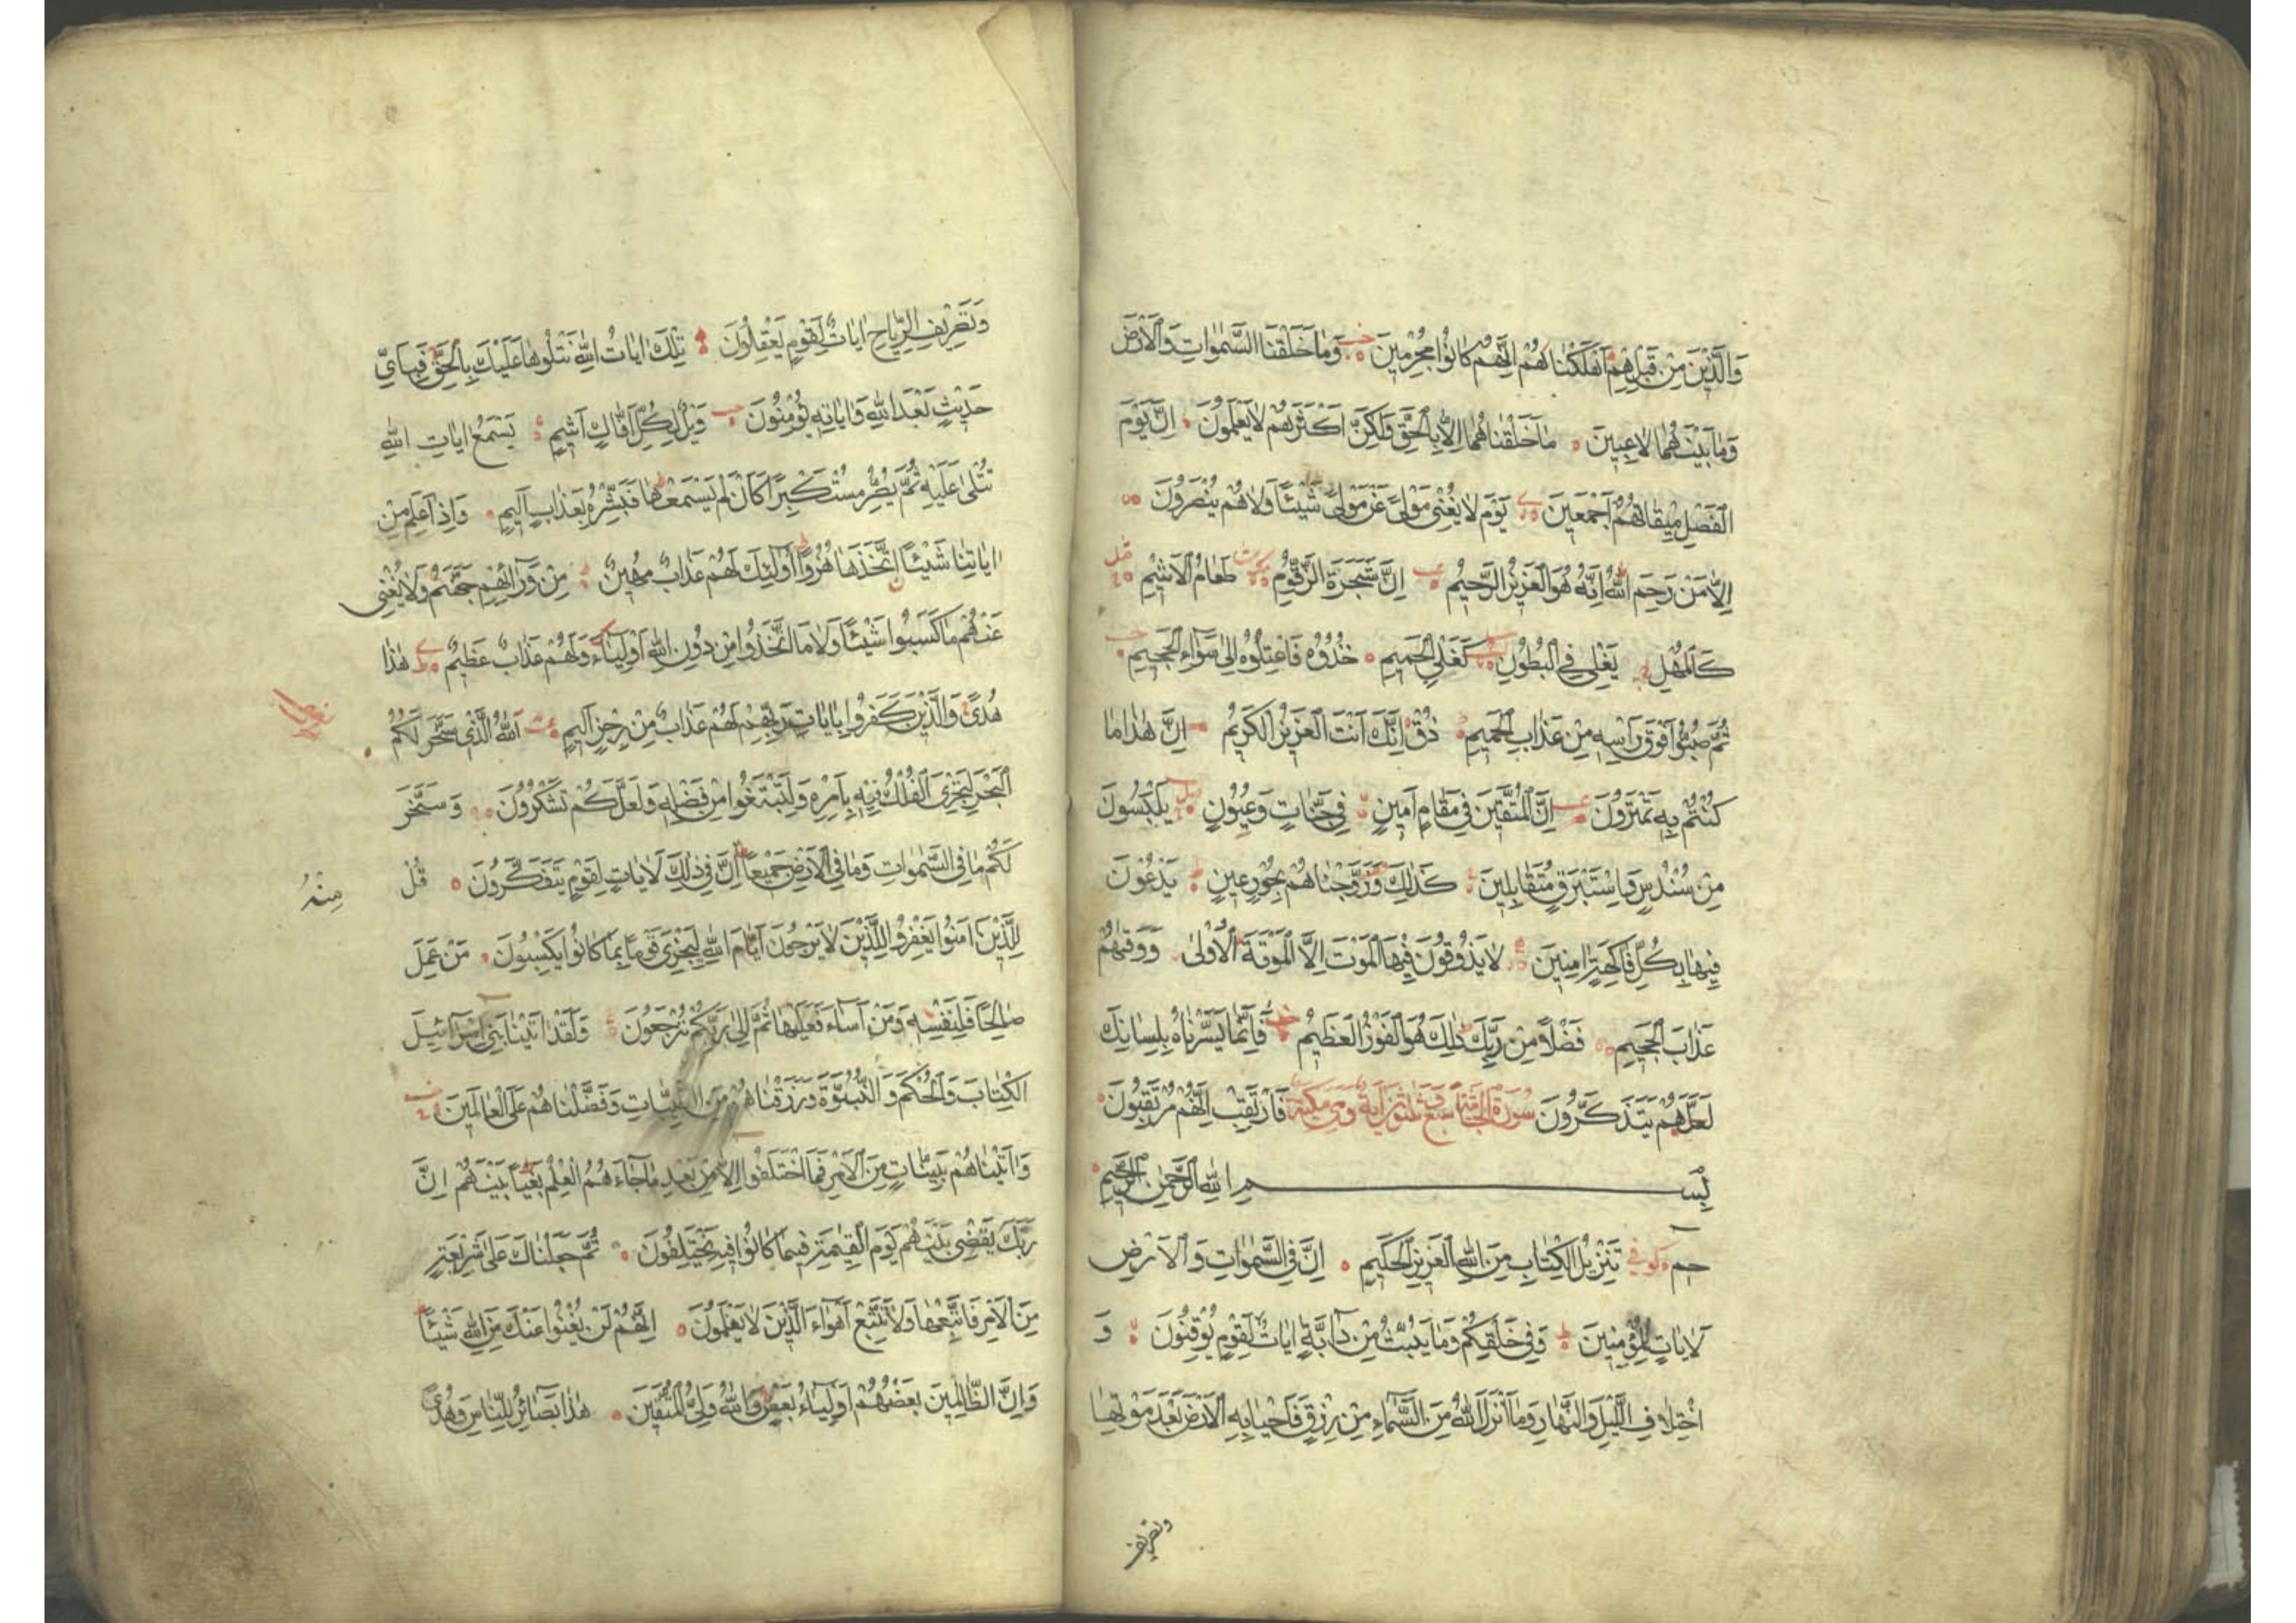 وَالَّذِيْنَ مِنْ قَبْلِهِمْ اَهْلَكْنَاهُمْ اِنَّهُمْ كَانُوْا مُجْرِمِيْنَ وَمَا خَلَقْنَا السَّمٰوَاتِ وَالْاَرْضَ
وَمَا بَيْنَهُمَا لَاعِبِيْنَ مَا خَلَقْنَاهُمَا اِلَّا بِالْحَقِّ وَلٰكِنَّ اَكْثَرَهُمْ لَا يَعْلَمُوْنَ اِنَّ يَوْمَ
الْفَصْلِ مِيْقَاتُهُمْ اَجْمَعِيْنَ يَوْمَ لَا يُغْنِيْ مَوْلًى عَنْ مَوْلًى شَيْئًا وَلَا هُمْ يُنْصَرُوْنَ
اِلَّا مَنْ رَحِمَ اللّٰهُ اِنَّهُ هُوَ الْعَزِيْزُ الرَّحِيْمُ اِنَّ شَجَرَةَ الزَّقُّوْمِ طَعَامُ الْاَثِيْمِ
كَالْمُهْلِ يَغْلِيْ فِي الْبُطُوْنِ كَغَلْيِ الْحَمِيْمِ خُذُوْهُ فَاعْتِلُوْهُ اِلٰى سَوَآءِ الْجَحِيْمِ
ثُمَّ صُبُّوْا فَوْقَ رَاْسِهِ مِنْ عَذَابِ الْحَمِيْمِ ذُقْ اِنَّكَ اَنْتَ الْعَزِيْزُ الْكَرِيْمُ اِنَّ هٰذَا مَا
كُنْتُمْ بِهِ تَمْتَرُوْنَ اِنَّ الْمُتَّقِيْنَ فِيْ مَقَامٍ اَمِيْنٍ فِيْ جَنَّاتٍ وَعُيُوْنٍ يَلْبَسُوْنَ
مِنْ سُنْدُسٍ وَاِسْتَبْرَقٍ مُتَقَابِلِيْنَ كَذٰلِكَ وَزَوَّجْنَاهُمْ بِحُوْرٍ عِيْنٍ يَدْعُوْنَ
فِيْهَا بِكُلِّ فَاكِهَةٍ اٰمِنِيْنَ لَا يَذُوْقُوْنَ فِيْهَا الْمَوْتَ اِلَّا الْمَوْتَةَ الْاُوْلٰى وَوَقٰيهُمْ
عَذَابَ الْجَحِيْمِ فَضْلًا مِنْ رَبِّكَ ذٰلِكَ هُوَ الْفَوْزُ الْعَظِيْمُ فَاِنَّمَا يَسَّرْنَاهُ بِلِسَانِكَ
لَعَلَّهُمْ يَتَذَكَّرُوْنَ سُوْرَةُ الْجَاثِيَةِ سَبْعٌ وَثَلٰثُوْنَ اٰيَةً وَهِيَ مَكِّيَّةٌ فَارْتَقِبْ اِنَّهُمْ مُرْتَقِبُوْنَ
بِسْمِ اللّٰهِ الرَّحْمٰنِ الرَّحِيْمِ
حٰم كوفي تَنْزِيْلُ الْكِتَابِ مِنَ اللّٰهِ الْعَزِيْزِ الْحَكِيْمِ اِنَّ فِي السَّمٰوَاتِ وَالْاَرْضِ
لَاٰيَاتٍ لِلْمُؤْمِنِيْنَ وَفِيْ خَلْقِكُمْ وَمَا يَبُثُّ مِنْ دَآبَّةٍ اٰيَاتٌ لِقَوْمٍ يُوْقِنُوْنَ وَ
اخْتِلَافِ اللَّيْلِ وَالنَّهَارِ وَمَا اَنْزَلَ اللّٰهُ مِنَ السَّمَآءِ مِنْ رِزْقٍ فَاَحْيَا بِهِ الْاَرْضَ بَعْدَ مَوْتِهَا
وتصريف
وَتَصْرِيْفِ الرِّيَاحِ اٰيَاتٌ لِقَوْمٍ يَعْقِلُوْنَ تِلْكَ اٰيَاتُ اللّٰهِ نَتْلُوْهَا عَلَيْكَ بِالْحَقِّ فَبِاَيِّ
حَدِيْثٍ بَعْدَ اللّٰهِ وَاٰيَاتِهِ يُؤْمِنُوْنَ وَيْلٌ لِكُلِّ اَفَّاكٍ اَثِيْمٍ يَسْمَعُ اٰيَاتِ اللّٰهِ
تُتْلٰى عَلَيْهِ ثُمَّ يُصِرُّ مُسْتَكْبِرًا كَاَنْ لَمْ يَسْمَعْهَا فَبَشِّرْهُ بِعَذَابٍ اَلِيْمٍ وَاِذَا عَلِمَ مِنْ
اٰيَاتِنَا شَيْئًا اتَّخَذَهَا هُزُوًا اُولٰئِكَ لَهُمْ عَذَابٌ مُهِيْنٌ مِنْ وَرَآئِهِمْ جَهَنَّمُ وَلَا يُغْنِيْ
عَنْهُمْ مَا كَسَبُوْا شَيْئًا وَلَا مَا اتَّخَذُوْا مِنْ دُوْنِ اللّٰهِ اَوْلِيَآءَ وَلَهُمْ عَذَابٌ عَظِيْمٌ هٰذَا
هُدًى وَالَّذِيْنَ كَفَرُوْا بِاٰيَاتِ رَبِّهِمْ لَهُمْ عَذَابٌ مِنْ رِجْزٍ اَلِيْمٍ اَللّٰهُ الَّذِيْ سَخَّرَ لَكُمُ
الْبَحْرَ لِتَجْرِيَ الْفُلْكُ فِيْهِ بِاَمْرِهِ وَلِتَبْتَغُوْا مِنْ فَضْلِهِ وَلَعَلَّكُمْ تَشْكُرُوْنَ وَسَخَّرَ
لَكُمْ مَا فِي السَّمٰوَاتِ وَمَا فِي الْاَرْضِ جَمِيْعًا اِنَّ فِيْ ذٰلِكَ لَاٰيَاتٍ لِقَوْمٍ يَتَفَكَّرُوْنَ قُلْ
مِنْهُ
لِلَّذِيْنَ اٰمَنُوْا يَغْفِرُوْا لِلَّذِيْنَ لَا يَرْجُوْنَ اَيَّامَ اللّٰهِ لِيَجْزِيَ قَوْمًا بِمَا كَانُوْا يَكْسِبُوْنَ مَنْ عَمِلَ
صَالِحًا فَلِنَفْسِهِ وَمَنْ اَسَآءَ فَعَلَيْهَا ثُمَّ اِلٰى رَبِّكُمْ تُرْجَعُوْنَ وَلَقَدْ اٰتَيْنَا بَنِيْ اِسْرَآئِيْلَ
الْكِتَابَ وَالْحُكْمَ وَالنُّبُوَّةَ وَرَزَقْنَاهُمْ مِنَ الطَّيِّبَاتِ وَفَضَّلْنَاهُمْ عَلَى الْعَالَمِيْنَ
وَاٰتَيْنَاهُمْ بَيِّنَاتٍ مِنَ الْاَمْرِ فَمَا اخْتَلَفُوْا اِلَّا مِنْ بَعْدِ مَا جَآءَهُمُ الْعِلْمُ بَغْيًا بَيْنَهُمْ اِنَّ
رَبَّكَ يَقْضِيْ بَيْنَهُمْ يَوْمَ الْقِيٰمَةِ فِيْمَا كَانُوْا فِيْهِ يَخْتَلِفُوْنَ ثُمَّ جَعَلْنَاكَ عَلٰى شَرِيْعَةٍ
مِنَ الْاَمْرِ فَاتَّبِعْهَا وَلَا تَتَّبِعْ اَهْوَآءَ الَّذِيْنَ لَا يَعْلَمُوْنَ اِنَّهُمْ لَنْ يُغْنُوْا عَنْكَ مِنَ اللّٰهِ شَيْئًا
وَاِنَّ الظَّالِمِيْنَ بَعْضُهُمْ اَوْلِيَآءُ بَعْضٍ وَاللّٰهُ وَلِيُّ الْمُتَّقِيْنَ هٰذَا بَصَآئِرُ لِلنَّاسِ وَهُدًى